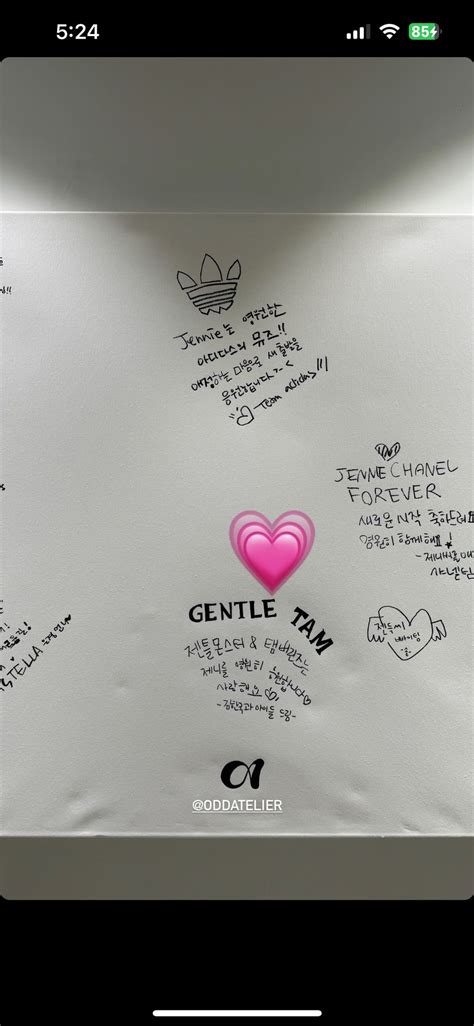 5:24
85
Jennie는 영원한
아디다스의 뮤즈!!
애정하는 마음으로 새 출발을
응원합니다 ><
-Team adidas
JENNIE CHANEL
FOREVER
새로운 시작 축하드려요
영원히 함께해요!
샤넬
GENTLE TAM
젠틀몬스터 & 탬버린즈는
제니를 영원히 응원합니다
사랑해요
STELLA
@ODDATELIER